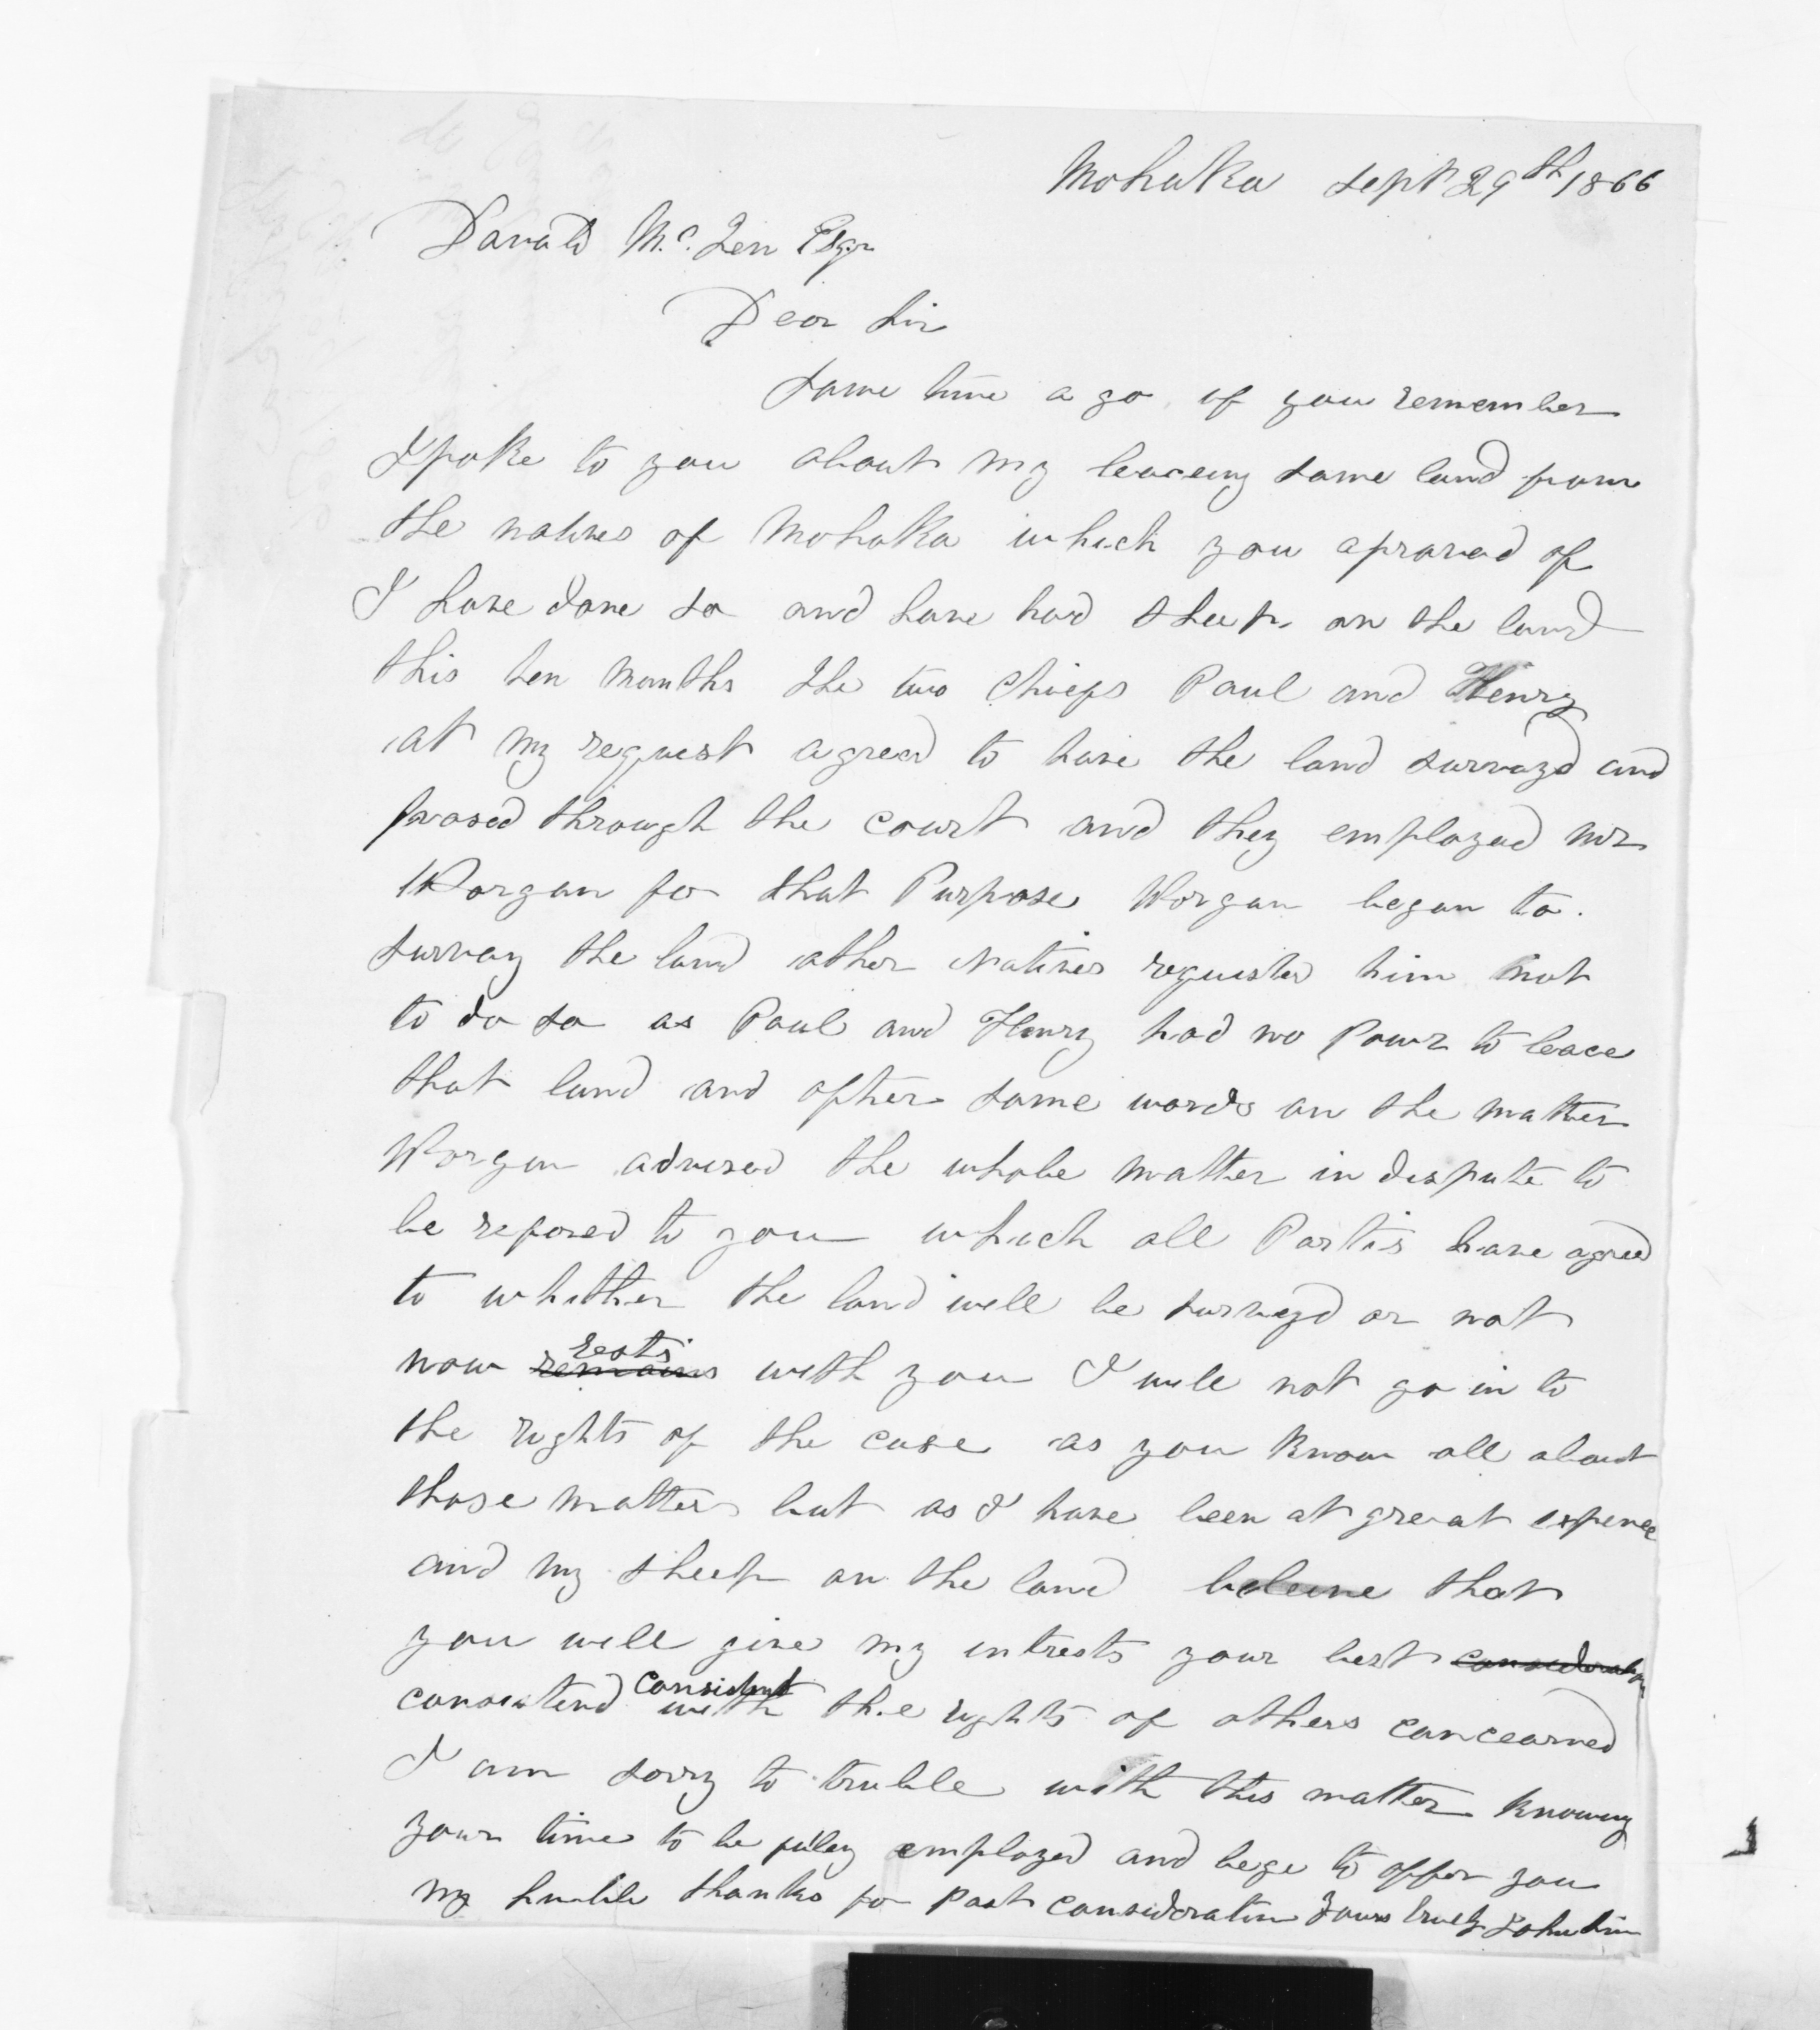 Mohaka Sept 29th 1866
Donald Mc. Len Esqr
Dear Sir
Some time a go if you remember
I spoke to you about my leaceing some land from
the natives of Mohaka which you aproved of
I have done so and have had sheep on the land
this ten months The two Chiefs Paul and Henry
at my request agreed to have the land survayd and
passed through the court and they employed Mr
Worgan for that Purpose Worgan began to
survay the land other Natives requisted him not
to do so as Paul and Henry had no Power to leace
that land and after some words on the matter
Worgan advised the whole matter in dispute to
be refored to you which all Partis have agreed
to whither the land will be surveyd or not
now remains rests with you I will not go in to
the rights of the case as you know all about
those matters but as I have been at great expence
and my sheep on the land beleive that
you will give my intrests your best consideration
consistend consistent with the rights of others concearned
I am sorry to truble with this matter knowing
your time to be fuley employed and bege to offer you
my humble thanks for past consideration Yours truly John Sim